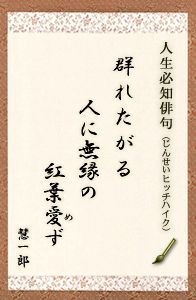 人生必知俳句（じんせいヒッチハイク）
群れたがる
人に無縁の
紅葉愛ず
め
慧一郎